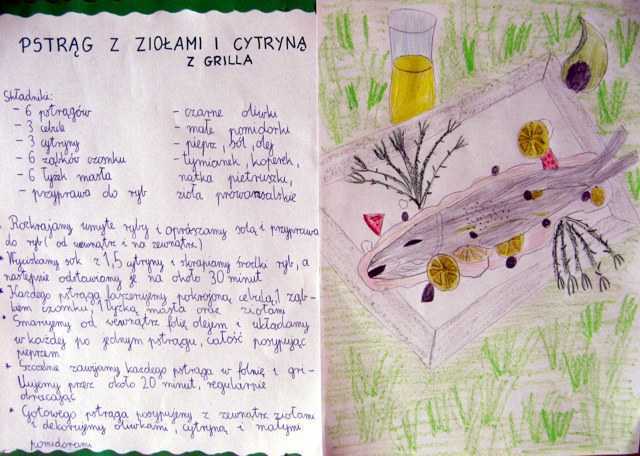 PSTRĄG Z ZIOŁAMI I CYTRYNĄ
Z GRILLA
Składniki:
- 6 pstrągów
- 3 cebule
- 3 cytryny
- 6 ząbków czosnku
- 6 łyżek masła
- przyprawa do ryb
- czarne oliwki
- małe pomidorki
- pieprz, sól, olej
- tymianek, koperek,
natka pietruszki,
zioła prowansalskie
Rozkrajamy umyte ryby i oprószamy solą i przyprawą
do ryb (od wewnątrz i na zewnątrz)
* Wyciskamy sok z 1,5 cytryny i skrapiamy środki ryb, a
następnie odstawiamy je na około 30 minut
* Każdego pstrąga faszerujemy pokrojoną cebulą, 1 ząb-
kiem czosnku, 1 łyżką masła oraz ziołami
* Smarujemy od wewnątrz folię olejem i układamy
w każdej po jednym pstrągu, całość posypując
pieprzem
* Szczelnie zawijamy każdego pstrąga w folię i gri-
llujemy przez około 20 minut, regularnie
obracając
* Gotowego pstrąga posypujemy z zewnątrz ziołami
i dekorujemy oliwkami, cytryną i małymi
pomidorami